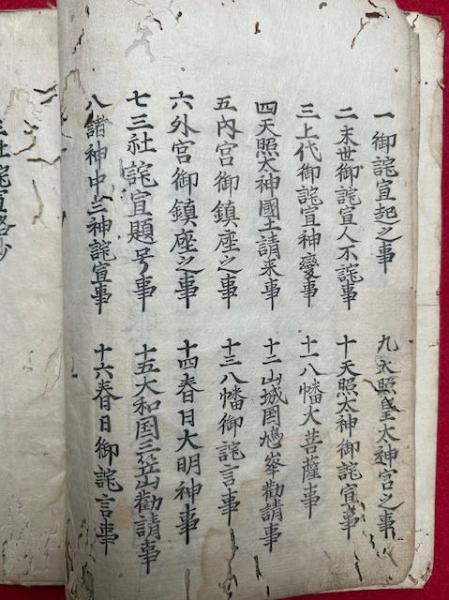 一御詫宣起之事
二末世御詫宣人不詫事
三上代御詫宣神變事
四天照太神國土請来事
五内宮御鎮座之事
六外宮御鎮座之事
七三社詫宣題号事
八諸神中三神詫宣事
九天照皇太神宮之事
十天照太神御詫宣事
十一八幡大菩薩事
十二山城国鳩峯勧請事
十三八幡御詫言事
十四春日大明神事
十五大和国三笠山勧請事
十六春日御詫言事
三社詫宣